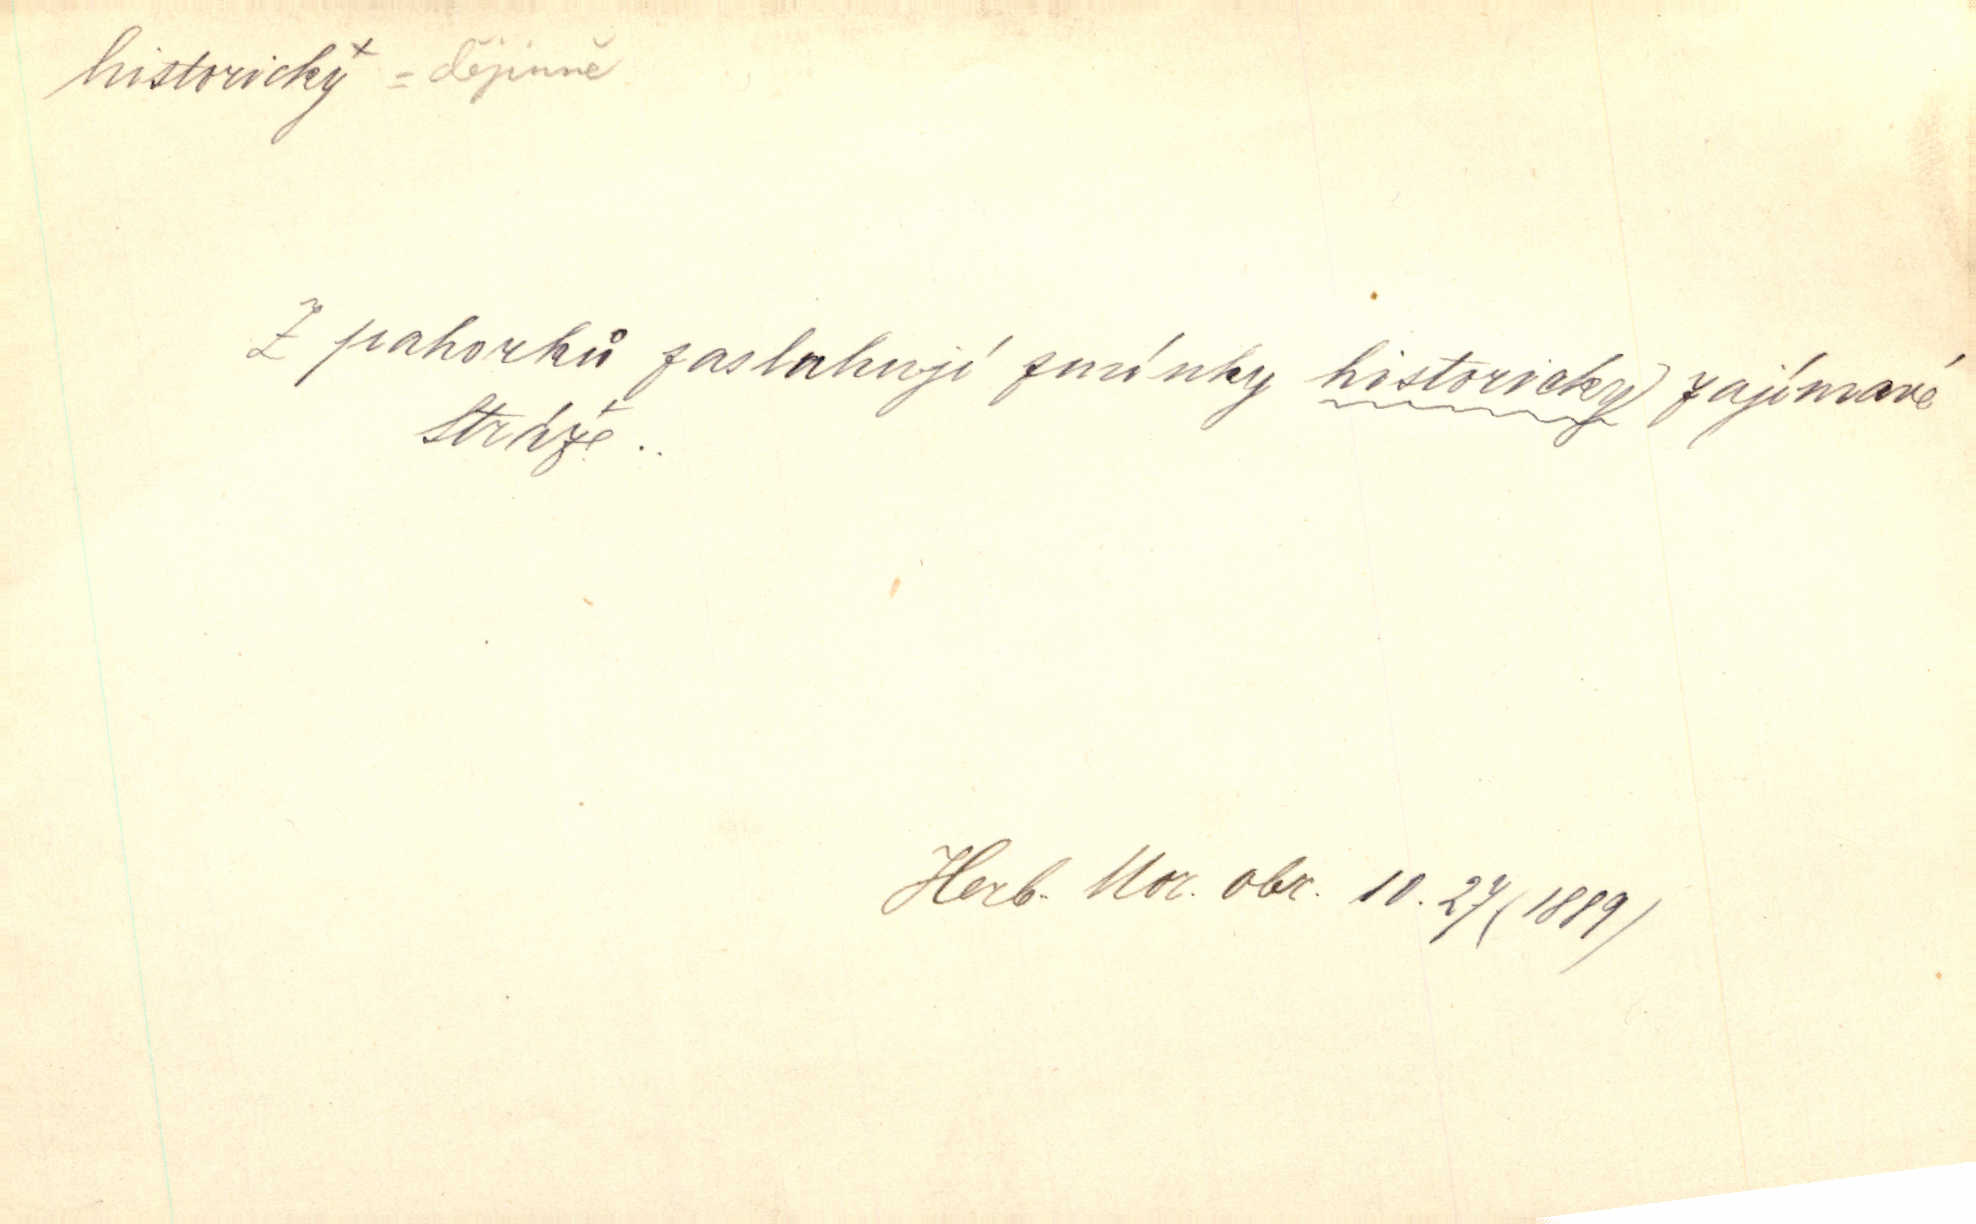 historicky + = dějinně
Z pahorků zasluhují zmínky historicky) zajímavé
Stráže ..
Herb. Mor. obr. 10. 27 (1889)